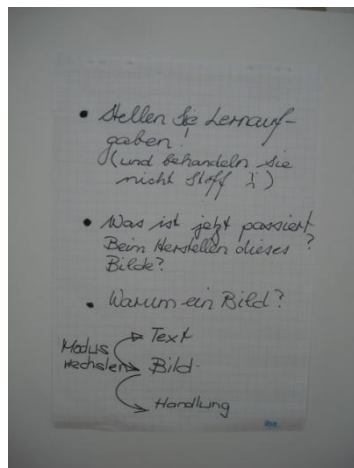 • Stellen Sie Lernauf-
gaben!
(und behandeln Sie
nicht Stoff !)
• Was ist jetzt passiert
Beim Herstellen dieses ?
Bilde?
• Warum ein Bild?
Text
Modus
wechseln Bild
Handlung